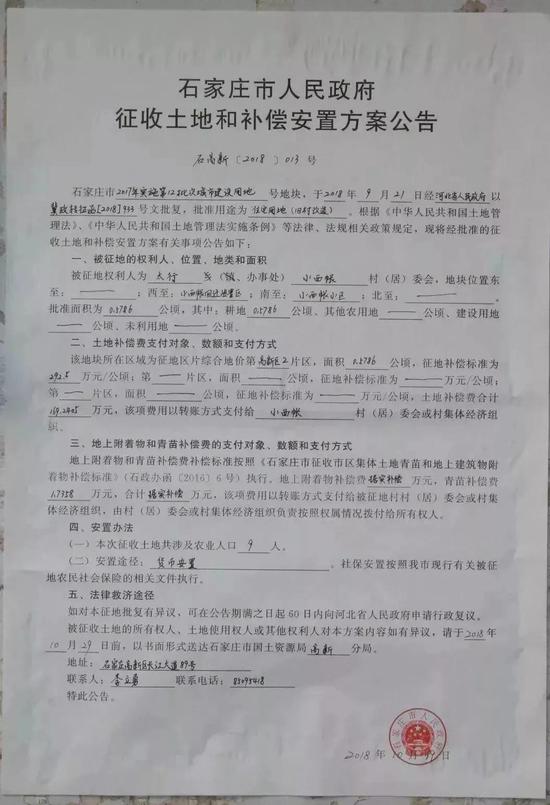 石家庄市人民政府
征收土地和补偿安置方案公告
石高新〔2018〕013号
石家庄市2017年实施第12批次城市建设用地 号地块,于2018年9月21日经河北省人民政府以
冀政转征函[2018]933号文批复,批准用途为住宅用地(旧村改造)。根据《中华人民共和国土地管
理法》、《中华人民共和国土地管理法实施条例》等法律、法规相关政策规定,现将经批准的征
收土地和补偿安置方案有关事项公告如下:
一、被征地的权利人、位置、地类和面积
被征地权利人为 太行 乡(镇、办事处) 小西帐 村(居)委会,地块位置东
至: —— ;西至: 小西帐回迁 ;南至: 小西帐小区 ;北至: —— 。
批准面积为 0.5786 公顷,其中:耕地 0.5786 公顷、其他农用地 —— 公顷、建设用地
—— 公顷、未利用地 —— 公顷。
二、土地补偿费支付对象、数额和支付方式
该地块所在区域为征地区片综合地价第高新区2片区,面积 0.5786 公顷,征地补偿标准为
292.5 万元/公顷;第 —— 片区,面积 —— 公顷,征地补偿标准为 —— 万元/公顷;
第 —— 片区,面积 —— 公顷,征地补偿标准为 —— 万元/公顷,土地补偿费合计
169.2405 万元,该项费用以转账方式支付给 小西帐 村(居)委会或村集体经济组
织。
三、地上附着物和青苗补偿费的支付对象、数额和支付方式
地上附着物和青苗补偿费补偿标准按照《石家庄市征收市区集体土地青苗和地上建筑物附
着物补偿标准》(石政办函〔2016〕6号)执行。地上附着物补偿费据实补偿 万元,青苗补偿费
1.7358 万元,合计 据实补偿 万元,该项费用以转账方式支付给被征地村村(居)委会或村集
体经济组织,由村(居)委会或村集体经济组织负责按照权属情况拨付给所有权人。
四、安置办法
(一)本次征收土地共涉及农业人口 9 人。
(二)安置途径: 货币安置 。社保安置按照我市现行有关被征
地农民社会保险的相关文件执行。
五、法律救济途径
如对本征地批复有异议,可在公告期满之日起60日内向河北省人民政府申请行政复议。
被征收土地的所有权人、土地使用权人或其他权利人对本方案内容如有异议,请于2018年
10月29日前,以书面形式送达石家庄市国土资源局 高新 分局。
地址: 石家庄高新区长江大道89号
联系人: 李立勇 联系电话: 85095418
特此公告。
石家庄市人民政府
2018年10月19日